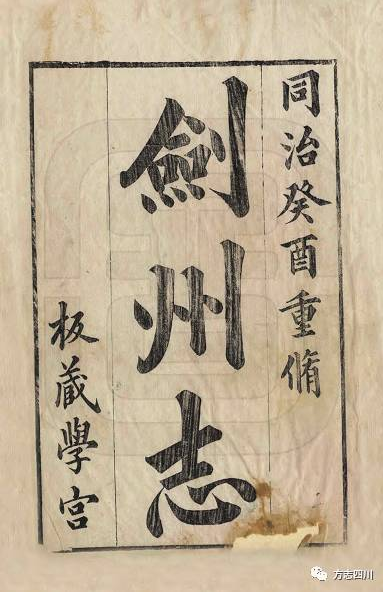 同治癸酉重脩
劍州志
板藏學宮
方志四川